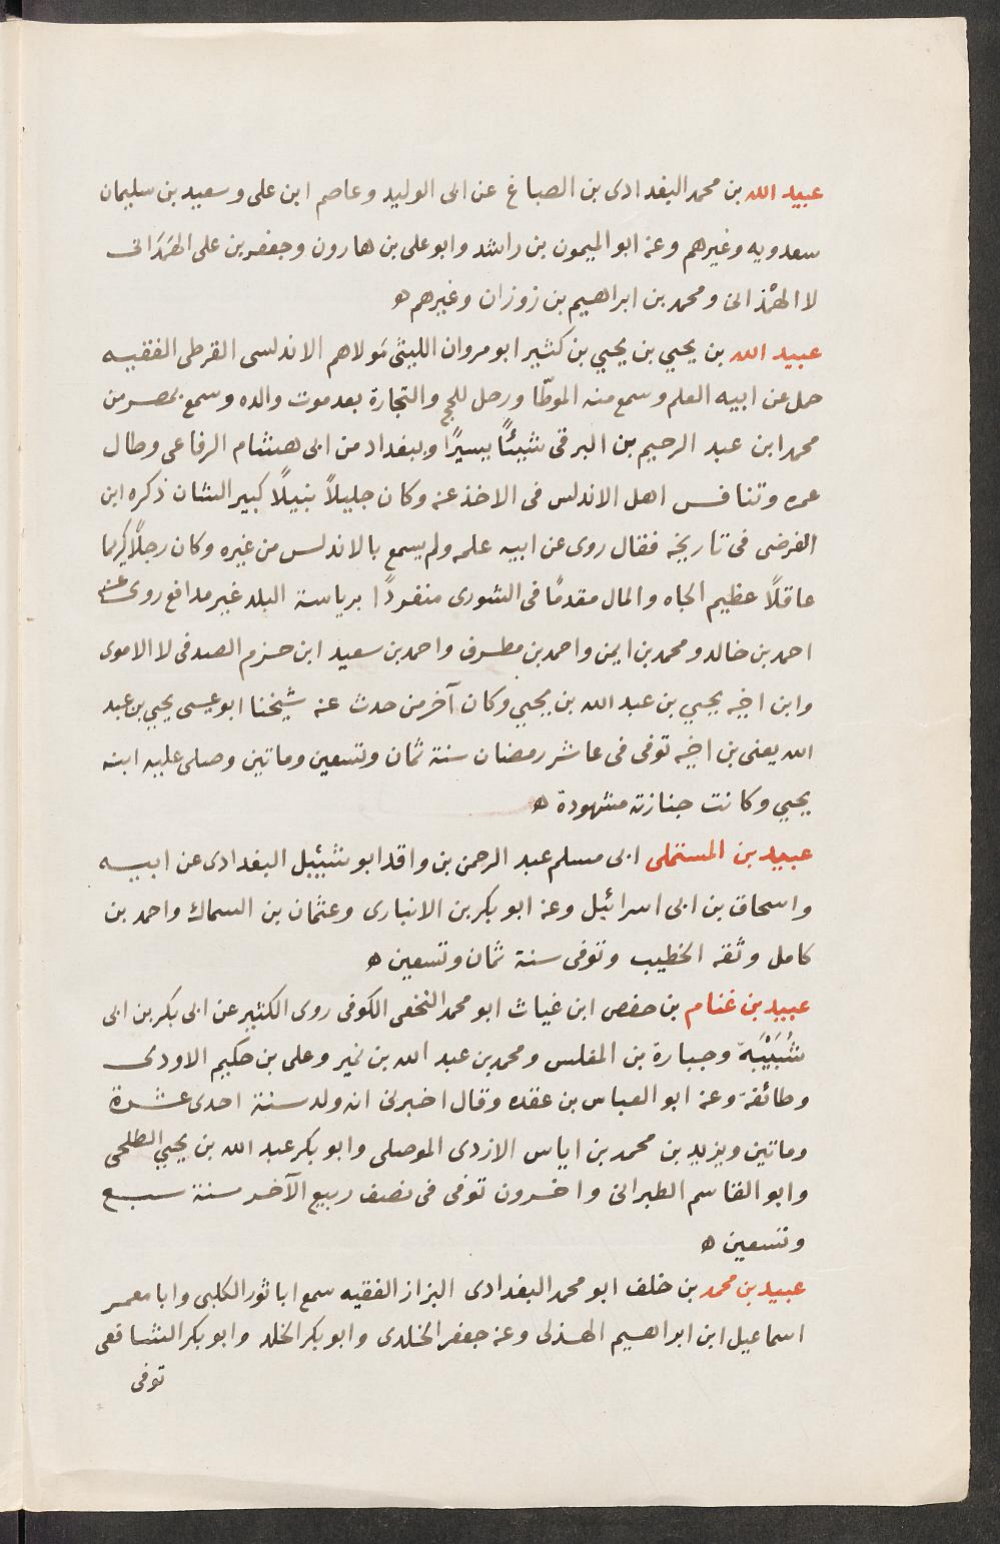 عبيد الله بن محمد البغدادى بن الصباغ عن ابى الوليد وعاصم ابن على وسعيد بن سليمان
سعدويه وغيرهم وعنه ابو الميمون بن راشد وابو على بن هارون وجعفر بن على الهَمَدَانى
لا الهمْذانى ومحمد بن ابراهيم بن زوزان وغيرهم ه
عبيد الله بن يحيي بن يحيي بن كثير ابو مروان الليثى مَولاهم الاندلسى القرطى الفقيه
حمل عن ابيه العلم وسمع منه الموطّا ورحل للحج والتجارة بعد موت والده وسمع بمصر من
محمد ابن عبد الرحيم بن البرقى شيئًا يسيرًا وببغداد من ابى هشام الرفاعى وطال
عمره وتنافس اهل الاندلس فى الاخذ عنه وكان جليلاً نبيلًا كبير الشان ذكره ابن
الفرضى فى تاريخه فقال روى عن ابيه علمه ولم يسمع بالاندلس من غيره وكان رجلًا كريما
عاقلًا عظيم الجاه والمال مقدمًا فى الشورى منفردًا برياسة البلد غير مدافع روى عنه
احمد بن خالد ومحمد بن ايمن واحمد بن مطرف واحمد بن سعيد ابن حزم الصدفى لا الاموى
وابن اخيه يحيي بن عبد الله بن يحيي وكان آخر من حدث عنه شيخنا ابو عيسى يحيي بن عبد
الله يعنى بن اخيه توفى فى عاشر رمضان سنة ثمان وتسعين وماتين وصلى عليه ابنه
يحيي وكانت جنازته مشهودة ه
عبيد بن المستملى ابى مسلم عبد الرحمن بن واقد ابو شبيل البغدادى عن ابيه
واسحاق بن ابى اسرائيل وعنه ابو بكر بن الانبارى وعثمان بن السماك واحمد بن
كامل وثقه الخطيب وتوفى سنة ثمان وتسعين ه
عبيد بن غنام بن حفص ابن غياث ابو محمد النخعى الكوفى روى الكثير عن ابى بكر بن ابى
شُبَيْبَة وجبارة بن المفلس ومحمد بن عبد الله بن نمير وعلى بن حكيم الاودى
وطائفة وعنه ابو العباس بن عقده وقال اخبرنى انه ولد سنة احدى عشرة
وماتين ويزيد بن محمد بن اياس الازدى الموصلى وابو بكر عبد الله بن يحيي الطلحى
وابو القاسم الطبرانى واخرون توفى فى نصف ربيع الآخر سنة سبع
وتسعين ه
عبيد بن محمد بن خلف ابو محمد البغدادى البزاز الفقيه سمع ابا ثور الكلبى وابا معمر
اسماعيل ابن ابراهيم الهذلى وعنه جعفر الخلدى وابو بكر الخلد وابو بكر الشافعى
توفى